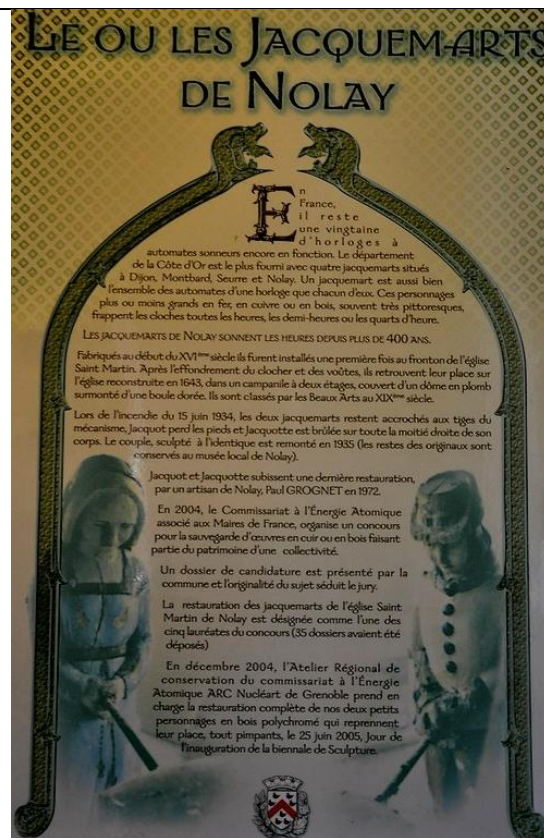 LE OU LES JACQUEMARTS
DE NOLAY
En
France,
il reste
une vingtaine
d'horloges à
automates sonneurs encore en fonction. Le département
de la Côte d'Or est le plus fourni avec quatre jacquemarts situés
à Dijon, Montbard, Seurre et Nolay. Un jacquemart est aussi bien
l'ensemble des automates d'une horloge que chacun d'eux. Ces personnages
plus ou moins grands en fer, en cuivre ou en bois, souvent très pittoresques,
frappent les cloches toutes les heures, les demi-heures ou les quarts d'heure.
LES JACQUEMARTS DE NOLAY SONNENT LES HEURES DEPUIS PLUS DE 400 ANS.
Fabriqués au début du XVIème siècle ils furent installés une première fois au fronton de l'église
Saint Martin. Après l'effondrement du clocher et des voûtes, ils retrouvent leur place sur
l'église reconstruite en 1643, dans un campanile à deux étages, couvert d'un dôme en plomb
surmonté d'une boule dorée. Ils sont classés par les Beaux Arts au XIXème siècle.
Lors de l'incendie du 15 juin 1934, les deux jacquemarts restent accrochés aux tiges du
mécanisme, Jacquot perd les pieds et Jacquotte est brûlée sur toute la moitié droite de son
corps. Le couple, sculpté à l'identique est remonté en 1935 (les restes des originaux sont
conservés au musée local de Nolay).
Jacquot et Jacquotte subissent une dernière restauration,
par un artisan de Nolay, Paul GROGNET en 1972.
En 2004, le Commissariat à l'Énergie Atomique
associé aux Maires de France, organise un concours
pour la sauvegarde d'œuvres en cuir ou en bois faisant
partie du patrimoine d'une collectivité.
Un dossier de candidature est présenté par la
commune et l'originalité du sujet séduit le jury.
La restauration des jacquemarts de l'église Saint
Martin de Nolay est désignée comme l'une des
cinq lauréates du concours (35 dossiers avaient été
déposés)
En décembre 2004, l'Atelier Régional de
conservation du commissariat à l'Énergie
Atomique ARC Nucléart de Grenoble prend en
charge la restauration complète de nos deux petits
personnages en bois polychromé qui reprennent
leur place, tout pimpants, le 25 juin 2005, Jour de
l'inauguration de la biennale de Sculpture.